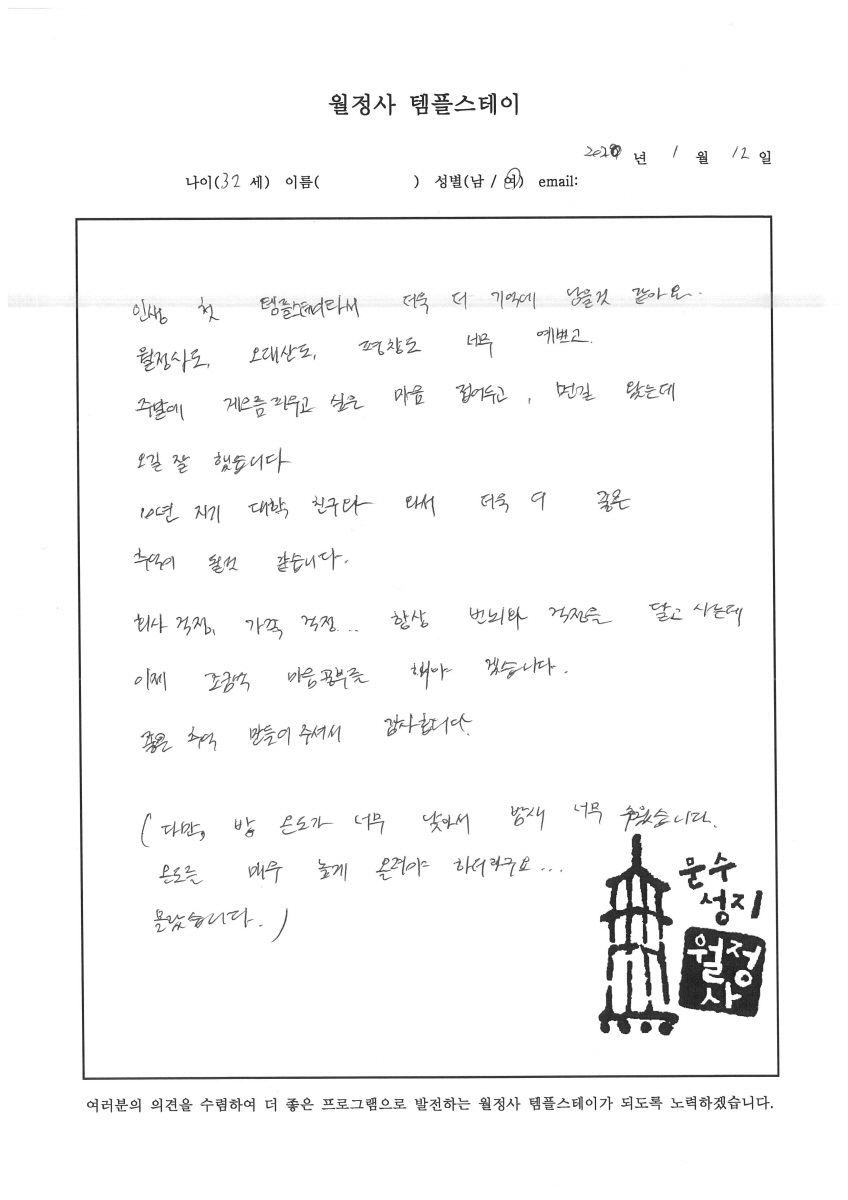 월정사 템플스테이
2020 년 1 월 12 일
나이(32 세) 이름( ) 성별(남 / 여) email:
인생 첫 템플스테이라서 더욱 더 기억에 남을것 같아요.
월정사도, 오대산도, 평창도 너무 예쁘고.
주말에 게으름 피우고 싶은 마음 접어두고, 먼길 왔는데
오길 잘 했습니다
10년 지기 대학 친구와 와서 더욱 더 좋은
추억이 될것 같습니다.
회사 걱정, 가족 걱정... 항상 번뇌와 걱정을 달고 사는데
이제 조금씩 마음공부를 해야 겠습니다.
좋은 추억 만들어 주셔서 감사합니다.
(다만, 방 온도가 너무 낮아서 밤새 너무 추웠습니다.
온도를 매우 높게 올려야 하더라구요...
몰랐습니다.)
문수
성지
월정
사
여러분의 의견을 수렴하여 더 좋은 프로그램으로 발전하는 월정사 템플스테이가 되도록 노력하겠습니다.